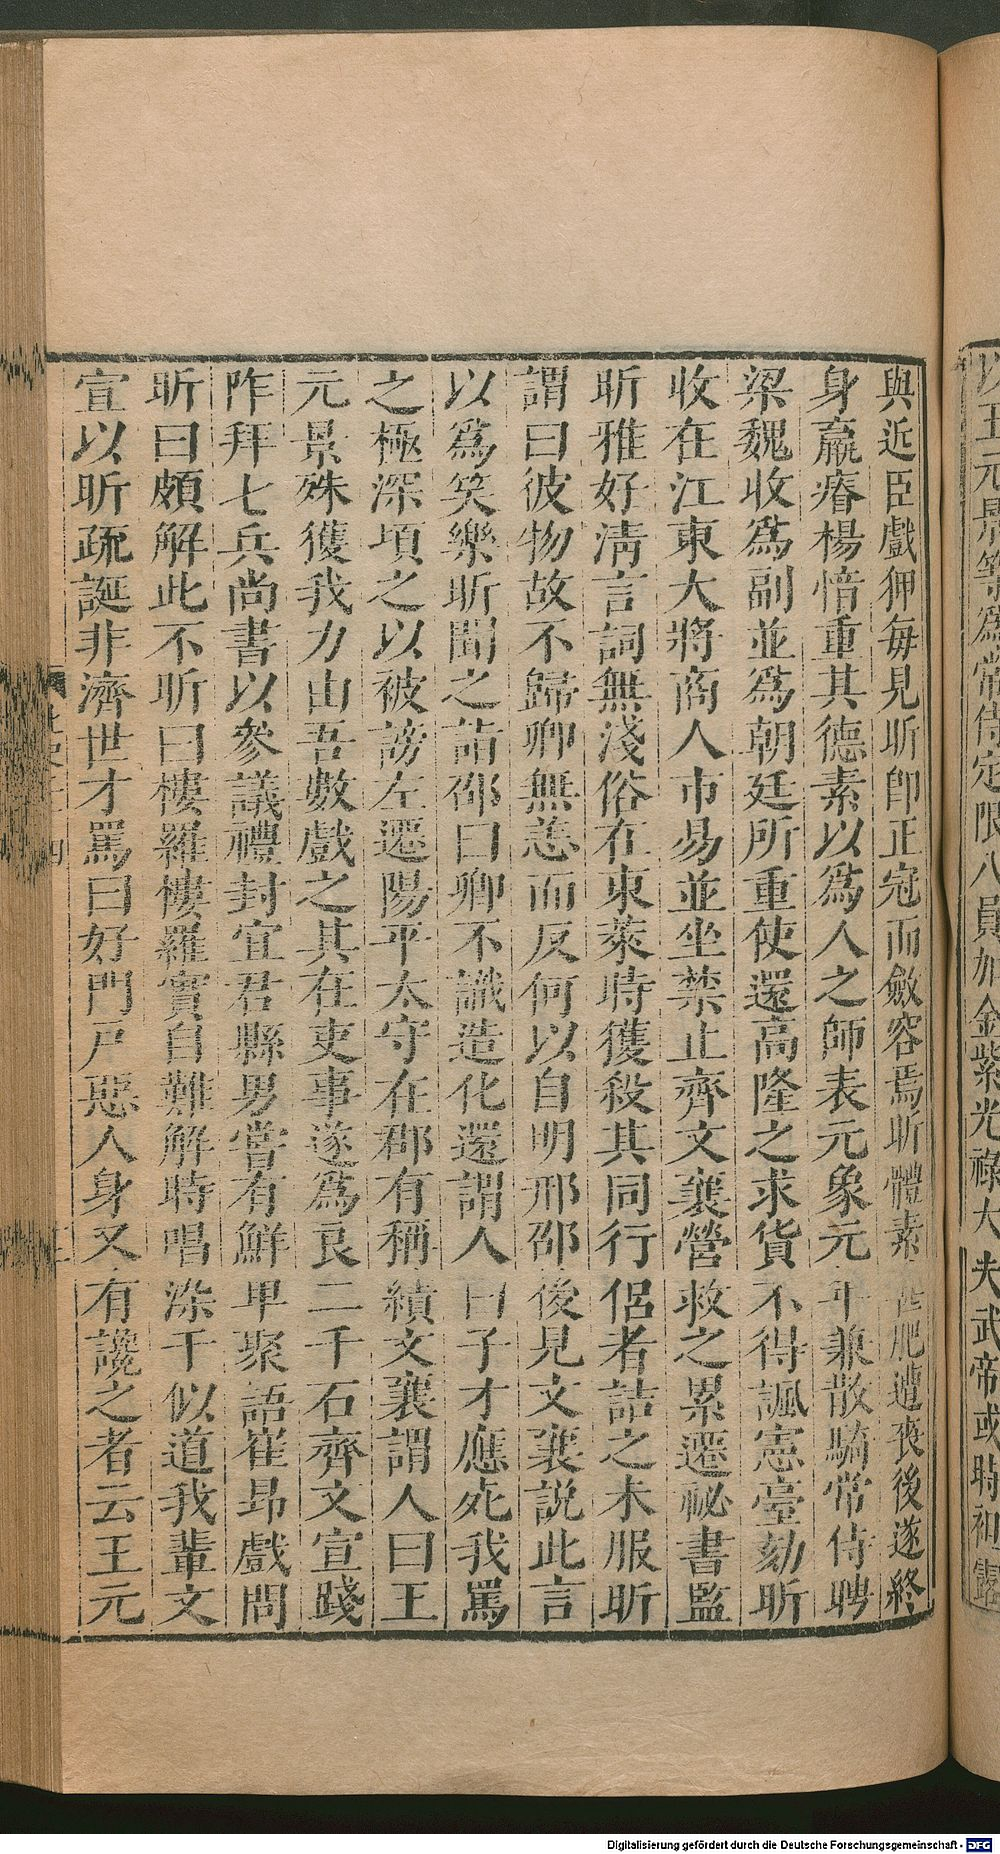 以五元景等爲常侍定限八員加金紫光祿大夫武帝或時袒露
與近臣戲狎每見昕即正冠而斂容焉昕體素肥遭喪後遂終
身羸瘠楊愔重其德素以爲人之師表元象元年兼散騎常侍聘
梁魏收爲副並爲朝廷所重使還高隆之求貨不得諷憲臺劾昕
收在江東大將商人市易並坐禁止齊文襄營救之累遷祕書監
昕雅好清言詞無淺俗在東萊時獲殺其同行侶者詰之未服昕
謂曰彼物故不歸卿無恙而反何以自明邢邵後見文襄説此言
以爲笑樂昕聞之詣邵曰卿不識造化還謂人曰子才應死我罵
之極深項之以被謗左遷陽平太守在郡有稱績文襄謂人曰王
元景殊獲我力由吾數戲之其在吏事遂爲良二千石齊文宣踐
阼拜七兵尚書以參議禮封宜君縣男嘗有鮮卑聚語崔昂戲問
昕曰頗解此不昕曰樓羅樓羅實自難解時唱染干似道我輩文
宣以昕疏誕非濟世才罵曰好門戸惡人身又有讒之者云王元
Digitalisierung gefördert durch die Deutsche Forschungsgemeinschaft - DFG